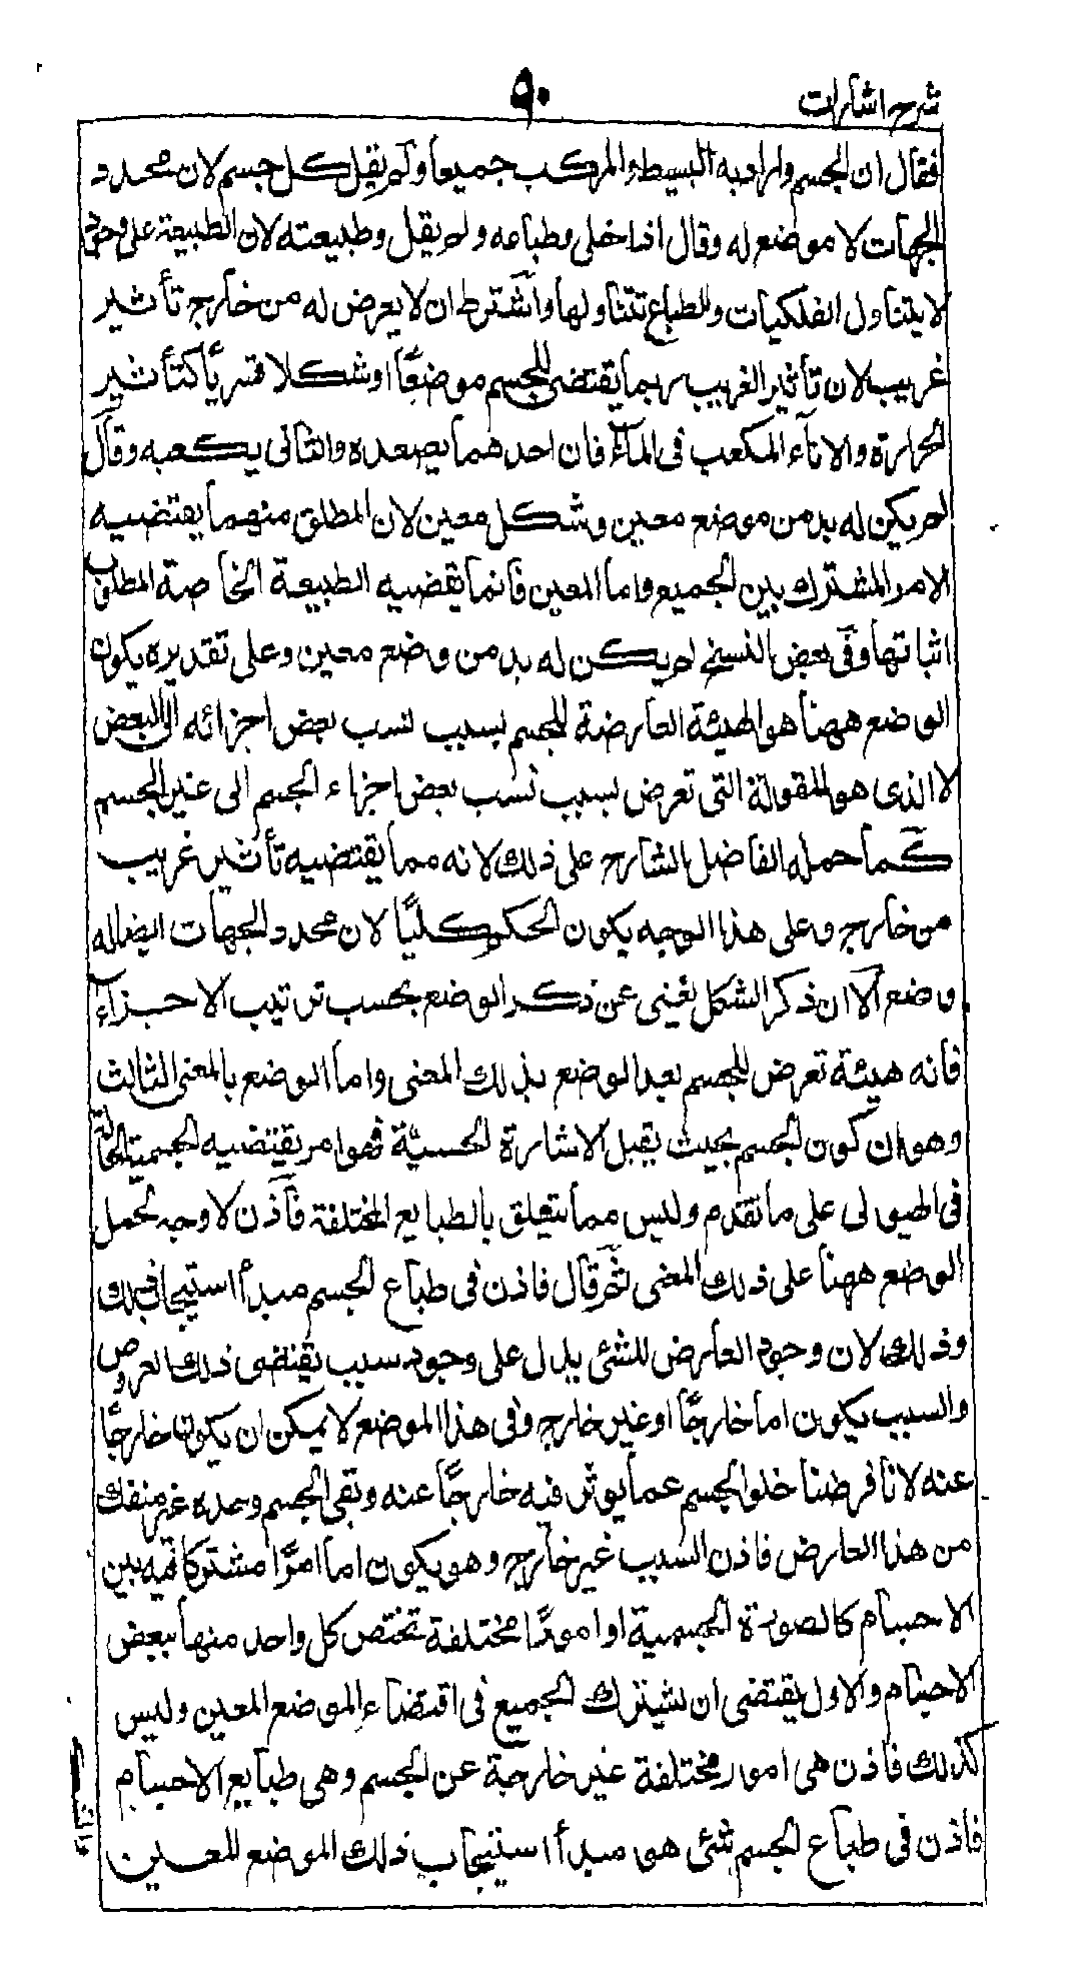 شرح اشارات
٩٠
فقال ان الجسم واراد به البسيط والمركب جميعا ولم يقل كل جسم لان محدد
الجهات لا موضع له وقال اذا خلى وطباعه ولم يقل وطبيعته لان الطبيعة على وجه
لا يتناول الفلكيات والطباع تتناولها واشترط ان لا يعرض له من خارج تأثير
غريب لان تأثير الغريب ربما يقتضى للجسم موضعًا او شكلا قسريًا كتأثير
الحرارة والاناء المكعب فى الماء فان احدهما يصعده والثانى يكعبه وقال
لم يكن له بد من موضع معين وشكل معين لان المطلق منهما يقتضيه
الامر المشترك بين الجميع واما المعين فانما يقضيه الطبيعة الخاصة المطلوب
اثباتها وفى بعض النسخ لم يكن له بد من وضع معين وعلى تقديره يكون
الوضع ههنا هو الهيئة العارضة للجسم بسبب نسب بعض اجزائه الى البعض
لا الذى هو المقولة التى تعرض بسبب نسب بعض اجزاء الجسم الى غير الجسم
كما حمله الفاضل الشارح على ذلك لانه مما يقتضيه تأثير غريب
من خارج وعلى هذا الوجه يكون الحكم كليًا لان محدد الجهات ايضا له
وضع الا ان ذكر الشكل يغنى عن ذكر الوضع بحسب ترتيب الاجزاء
فانه هيئة تعرض للجسم بعد الوضع بذلك المعنى واما الوضع بالمعنى الثالث
وهو ان كون الجسم بحيث يقبل الاشارة الحسية فهو امر يقتضيه الجسمية الحالة
فى الهيولى على ما تقدم وليس مما يتعلق بالطبايع المختلفة فاذن لا وجه لحمل
الوضع ههنا على ذلك المعنى ثم قال فاذن فى طباع الجسم مبدأ استيجاب ذلك
وذلك لان وجود العارض للشئ يدل على وجود سبب يقتضى ذلك العروض
والسبب يكون اما خارجًا او غير خارج وفى هذا الموضع لا يمكن ان يكون خارجًا
عنه لانا فرضنا خلو الجسم عما يوثر فيه خارجًا عنه وبقى الجسم وحده غير منفك
من هذا العارض فاذن السبب غير خارج وهو يكون اما امرًا مشتركا فيه بين
الاجسام كالصورة الجسمية او امورًا مختلفة تختص كل واحد منها ببعض
الاجسام والاول يقتضى ان يشترك الجميع فى اقتضاء الموضع المعين وليس
كذلك فاذن هى امور مختلفة غير خارجة عن الجسم وهى طبايع الاجسام
فاذن فى طباع الجسم شئ هو مبدأ استيجاب ذلك الموضع المعين